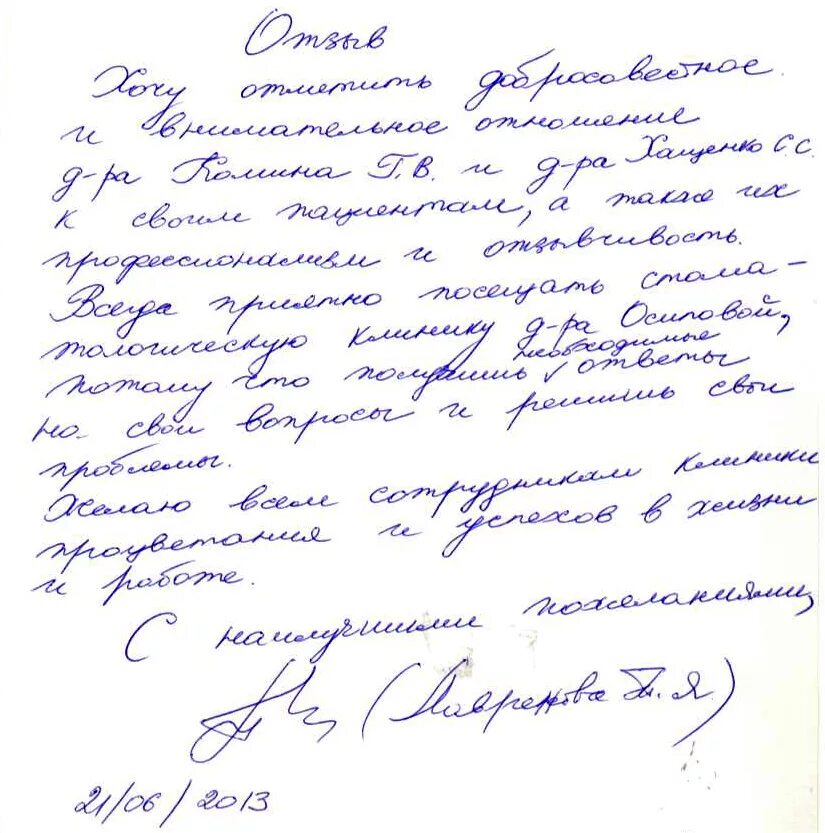 Отзыв
Хочу отметить добросовестное
и внимательное отношение
д-ра Комина Г.В. и д-ра Хащенко С.С.
к своим пациентам, а также их
профессионализм и отзывчивость.
Всегда приятно посещать стома-
тологическую клинику д-ра Осиповой,
необходимые
потому что получишь ответы
на свои вопросы и решишь свои
проблемы.
Желаю всем сотрудникам клиники
процветания и успехов в жизни
и работе.
С наилучшими пожеланиями,
(Лавренова Я.)
21/06/2013